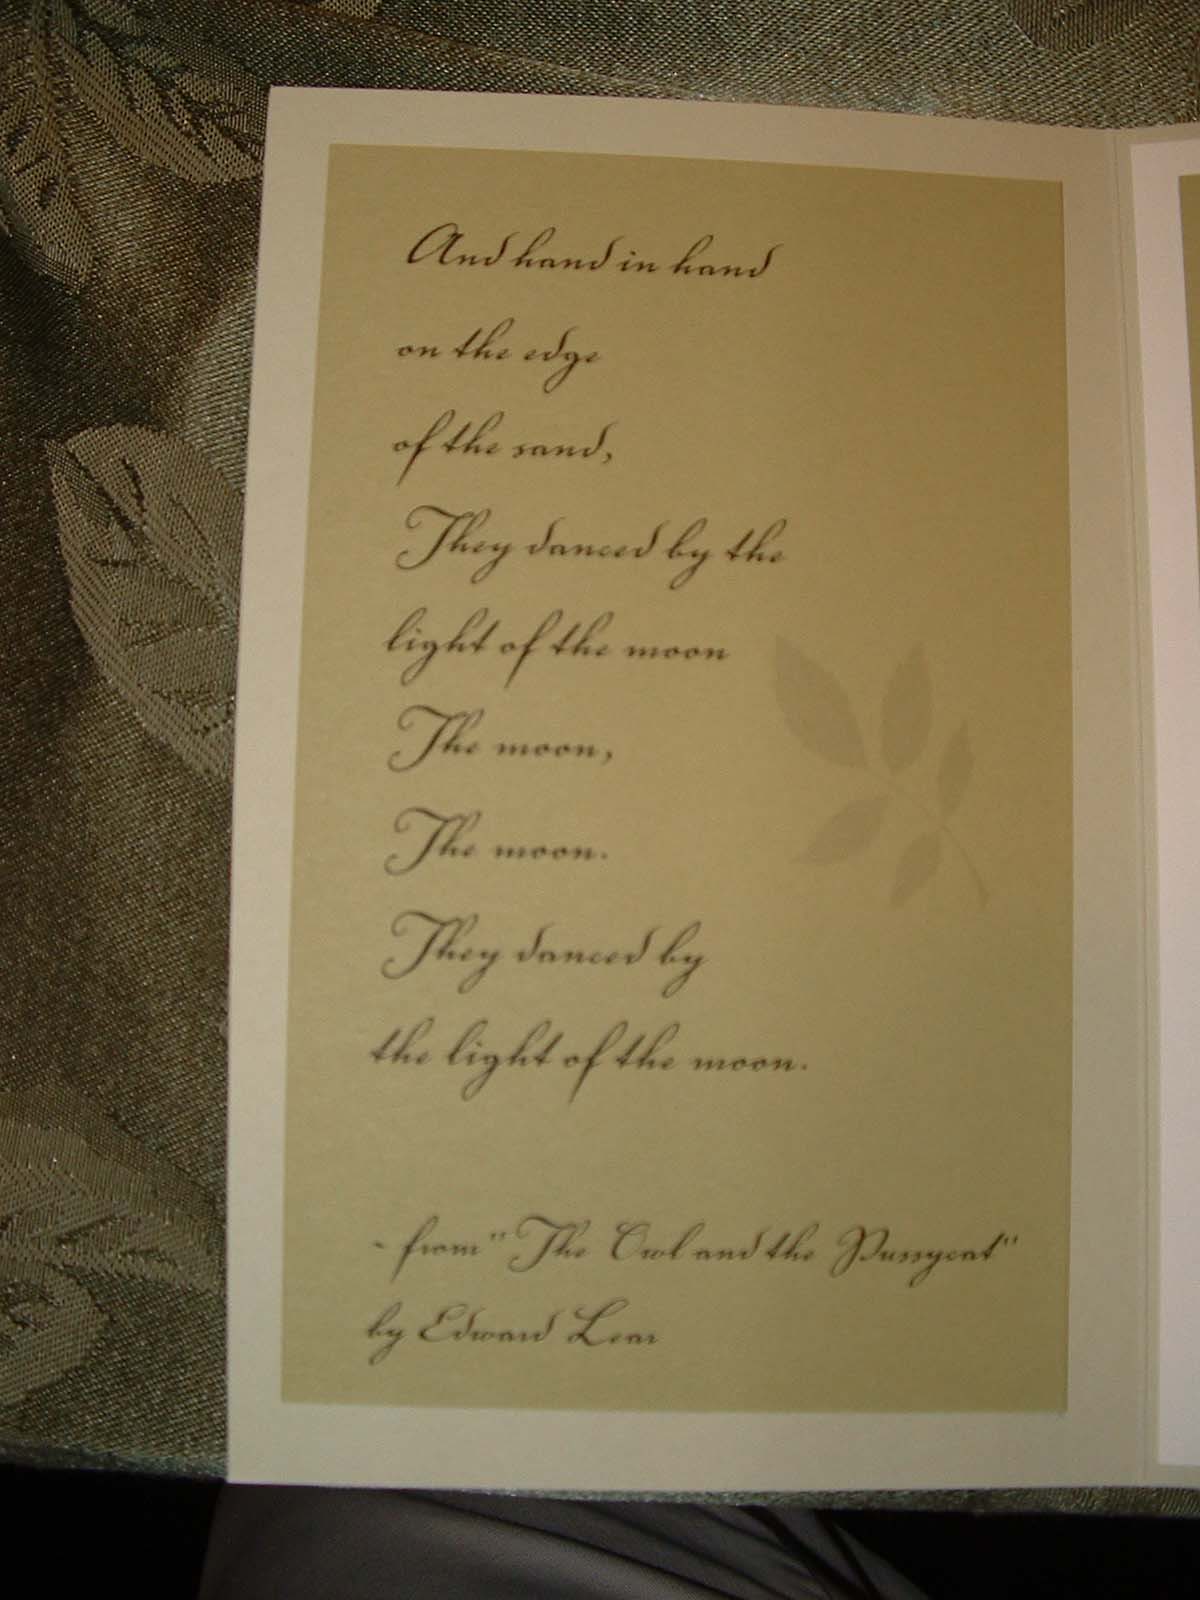 And hand in hand
on the edge
of the sand,
They danced by the
light of the moon
The moon,
The moon.
They danced by
the light of the moon.
- from "The Owl and the Pussycat"
by Edward Lear